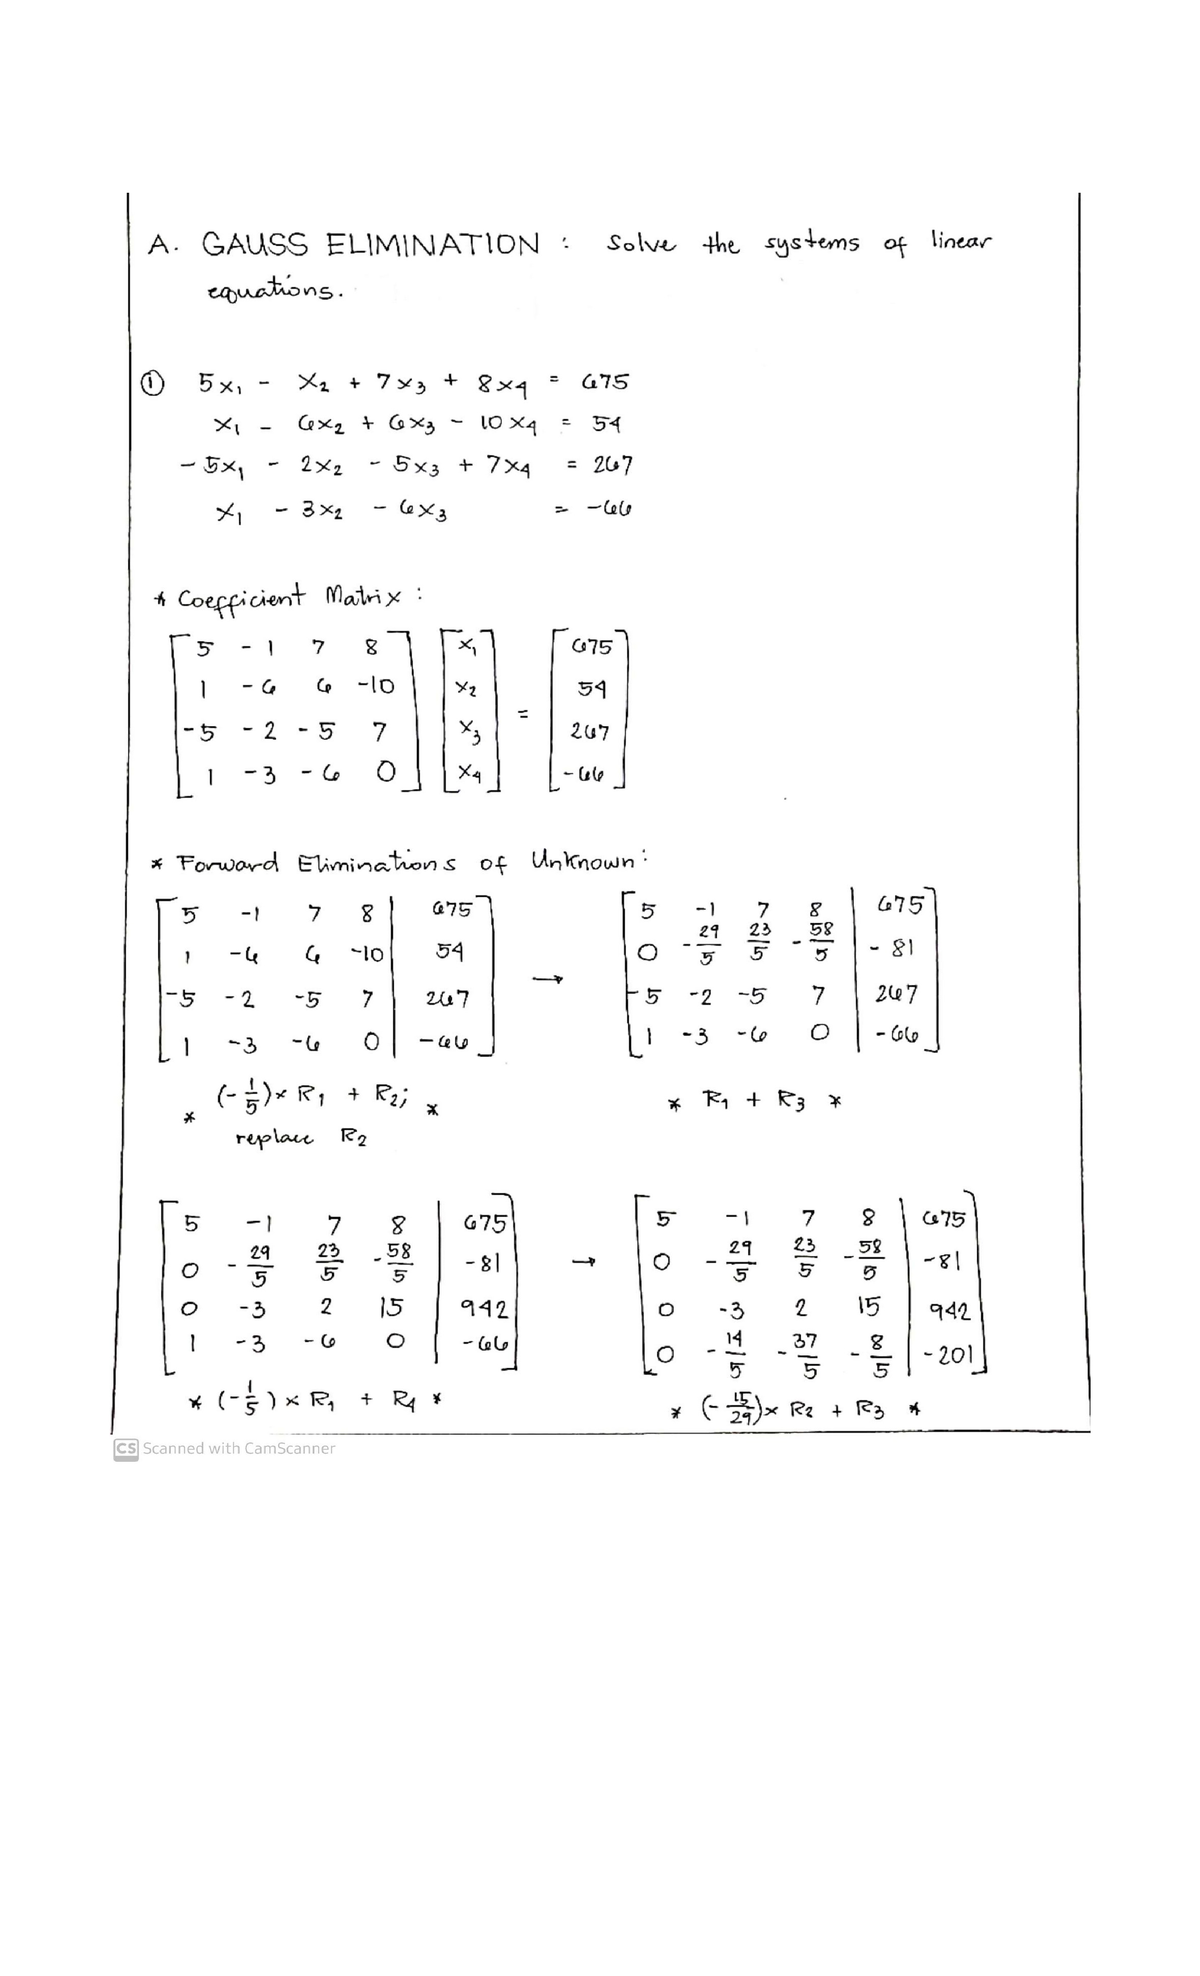 A. GAUSS ELIMINATION : Solve the systems of linear
equations.
① 5x₁ - x₂ + 7x₃ + 8x₄ = 675
x₁ - 6x₂ + 6x₃ - 10x₄ = 54
- 5x₁ - 2x₂ - 5x₃ + 7x₄ = 267
x₁ - 3x₂ - 6x₃ = -66
* Coefficient Matrix :
5 -1 7 8 x₁ 675
1 -6 6 -10 x₂ 54
-5 -2 -5 7 x₃ = 267
1 -3 -6 0 x₄ -66
* Forward Eliminations of Unknown :
5 -1 7 8 | 675
1 -6 6 -10 | 54
-5 -2 -5 7 | 267
1 -3 -6 0 | -66
* (-1/5) × R₁ + R₂; *
replace R₂
→
5 -1 7 8 | 675
0 -29/5 23/5 -58/5 | -81
-5 -2 -5 7 | 267
1 -3 -6 0 | -66
* R₁ + R₃ *
5 -1 7 8 | 675
0 -29/5 23/5 -58/5 | -81
0 -3 2 15 | 942
1 -3 -6 0 | -66
* (-1/5) × R₁ + R₄ *
→
5 -1 7 8 | 675
0 -29/5 23/5 -58/5 | -81
0 -3 2 15 | 942
0 -14/5 -37/5 -8/5 | -201
* (-15/29) × R₂ + R₃ *
CS Scanned with CamScanner